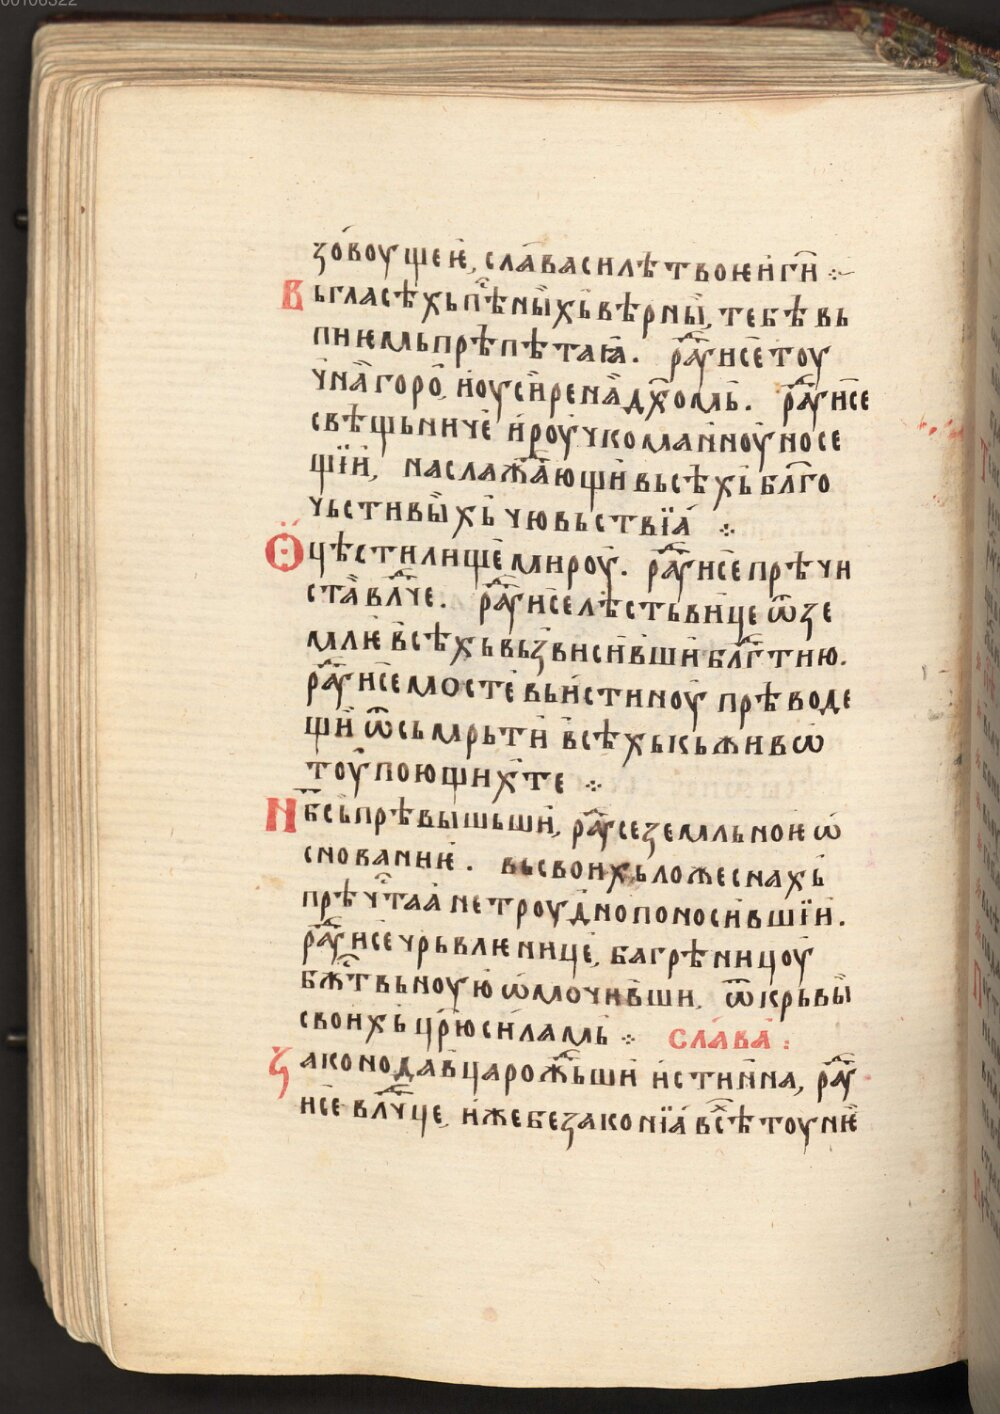 зо́воущеѥ, сла́василѣтвоѥи҆гн҃ ⁘
Вьгласѣ́хьпⷭ҇ѣ́ны̏хь̀вѣрны̏, тебѣвь
пиѥмьпрѣпѣтаꙗ̀. раⷣу҆исе́тоу
ч́на̏горо̀, и҆оуси҆рена̏дх҃омь̀. раⷣу҆исе
свѣщьничѐ и҆роу́чкоман҆ноу́носе
щїи҆, наслажⷣа́ющи҆вьсѣхь̀блг҃о
чьстивы̏хь̀чювьствїа́ ⁘
Ѻцѣстилище́мироу́. раⷣу҆исе́прѣчи
ста̏влⷣче. раⷣу҆исе́лѣстьвице ѿзе
млѥ̀в̾сѣхьвьзвиси́в̾ши҆блгⷣтию.
раⷣу҆исе́мостѐвьи҆стиноу́ прѣводе
щи҆ ѿсьмрьти҆ в̾сѣхькьживѡ̀
тоу́поющихⷭ҇те ⁘
Нб҃сь̀прѣвышьши҆, раⷣу҆сеземльноѥѡ҆
снованиѥ̀. вьсвоихьложеснахь̀
прѣчⷭ҇таа̀нетроу́дⷩ҇опоноси́вшїи҆.
раⷣу҆исе́чрьвлѥницѐ, багрѣницоу́
бжⷭ҇твьноую̀ѡ҆мочи́в̾ши, ѿкрьвы̏
своихь̀цр҃ю̀си́ламь̀ ⁘ сла́ва̀ :
Законода́в̾царожⷣь́ши҆ и҆стин҆на, раⷣу
исѐвлⷣчце, и҆жебезаконїа̀в̾сⷯѣ́тоунѥ̀